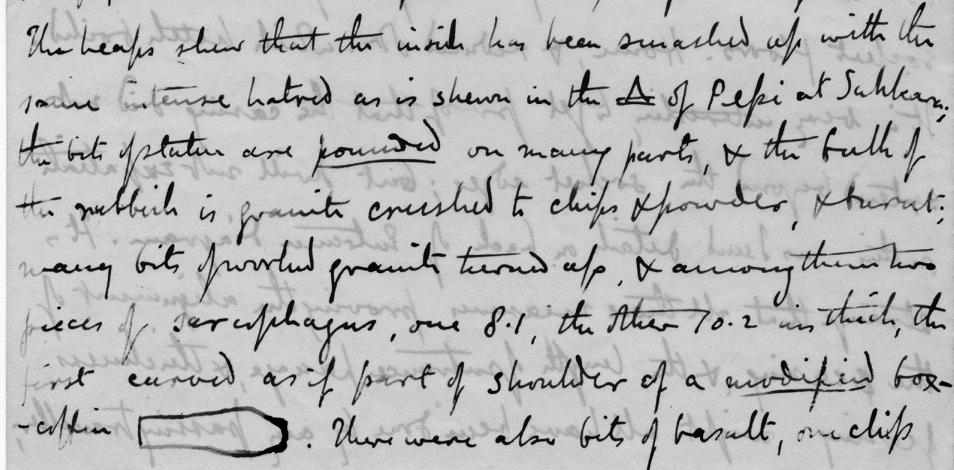 The heaps shew that the inside has been smashed up with the
same intense hatred as is shewn in the △ of Pepi at Sakkara;
the bits of statue are pounded on many parts, & the bulk of
the rubbish is granite crushed to chips & powder, & burnt;
many bits of worked granite turned up, & among them two
pieces of sarcophagus, one 8.1, the other 10.2 ins thick, the
first curved as if part of shoulder of a modified box-
-coffin . There were also bits of basalt, one chip